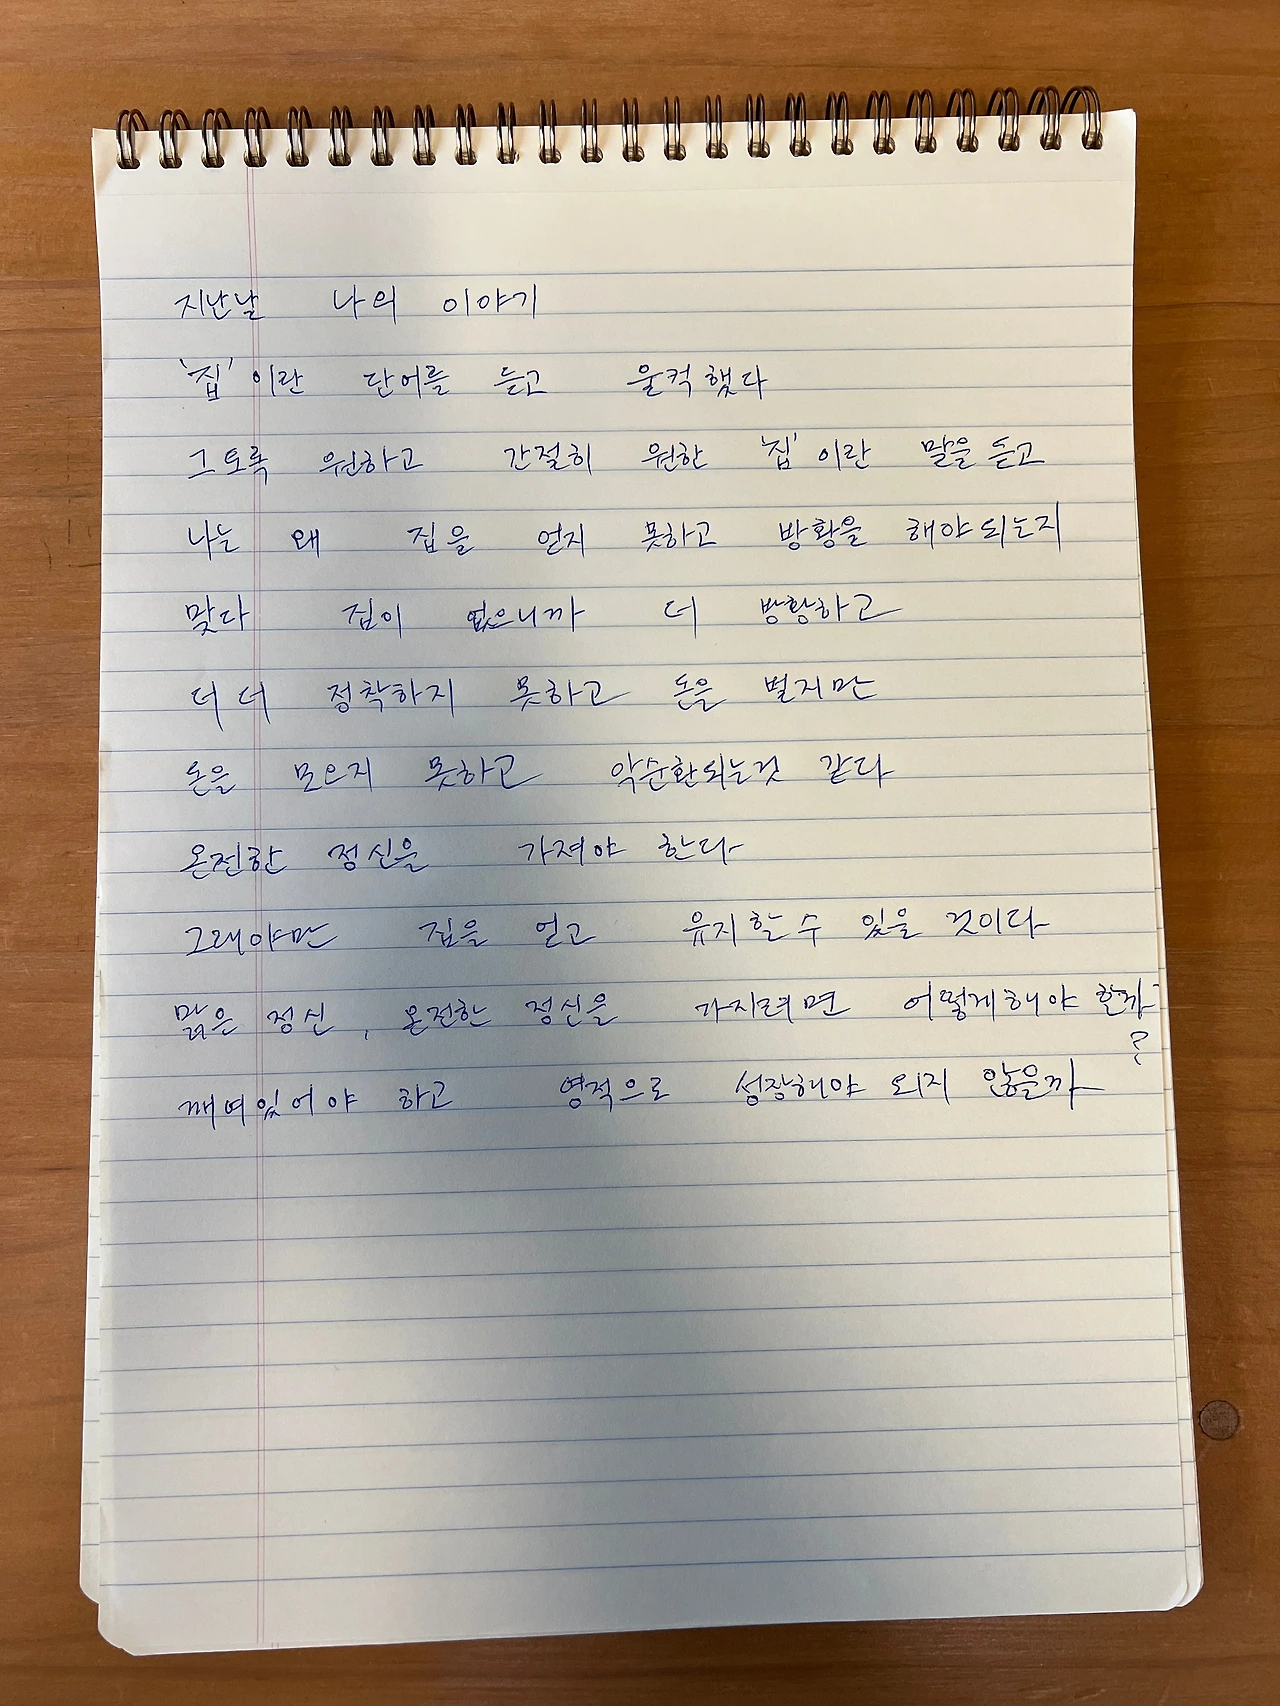 지난날 나의 이야기
'집'이란 단어를 듣고 울컥했다
그토록 원하고 간절히 원한 '집'이란 말을 듣고
나는 왜 집을 얻지 못하고 방황을 해야되는지
맞다 집이 없으니까 더 방황하고
더 더 정착하지 못하고 돈을 벌지만
돈을 모으지 못하고 악순환되는것 같다
온전한 정신을 가져야 한다
그래야만 집을 얻고 유지할수 있을 것이다
맑은 정신, 온전한 정신을 가지려면 어떻게해야 할까
?
깨여있어야 하고 영적으로 성장해야 되지 않을까